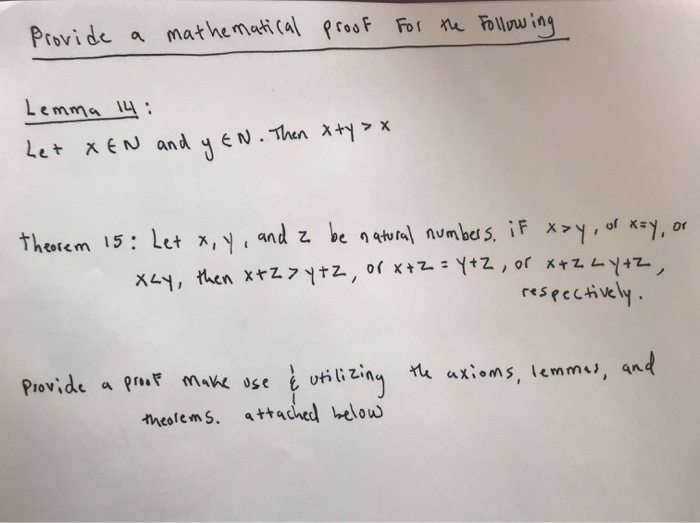 Provide a mathematical proof For the Following
Lemma 14:
Let x ∈ N and y ∈ N. Then x+y > x
Theorem 15: Let x, y, and z be natural numbers. iF x>y, or x=y, or
x<y, then x+z > y+z, or x+z = y+z, or x+z < y+z,
respectively.
Provide a proof make use & utilizing the axioms, lemmas, and
theorems. attached below